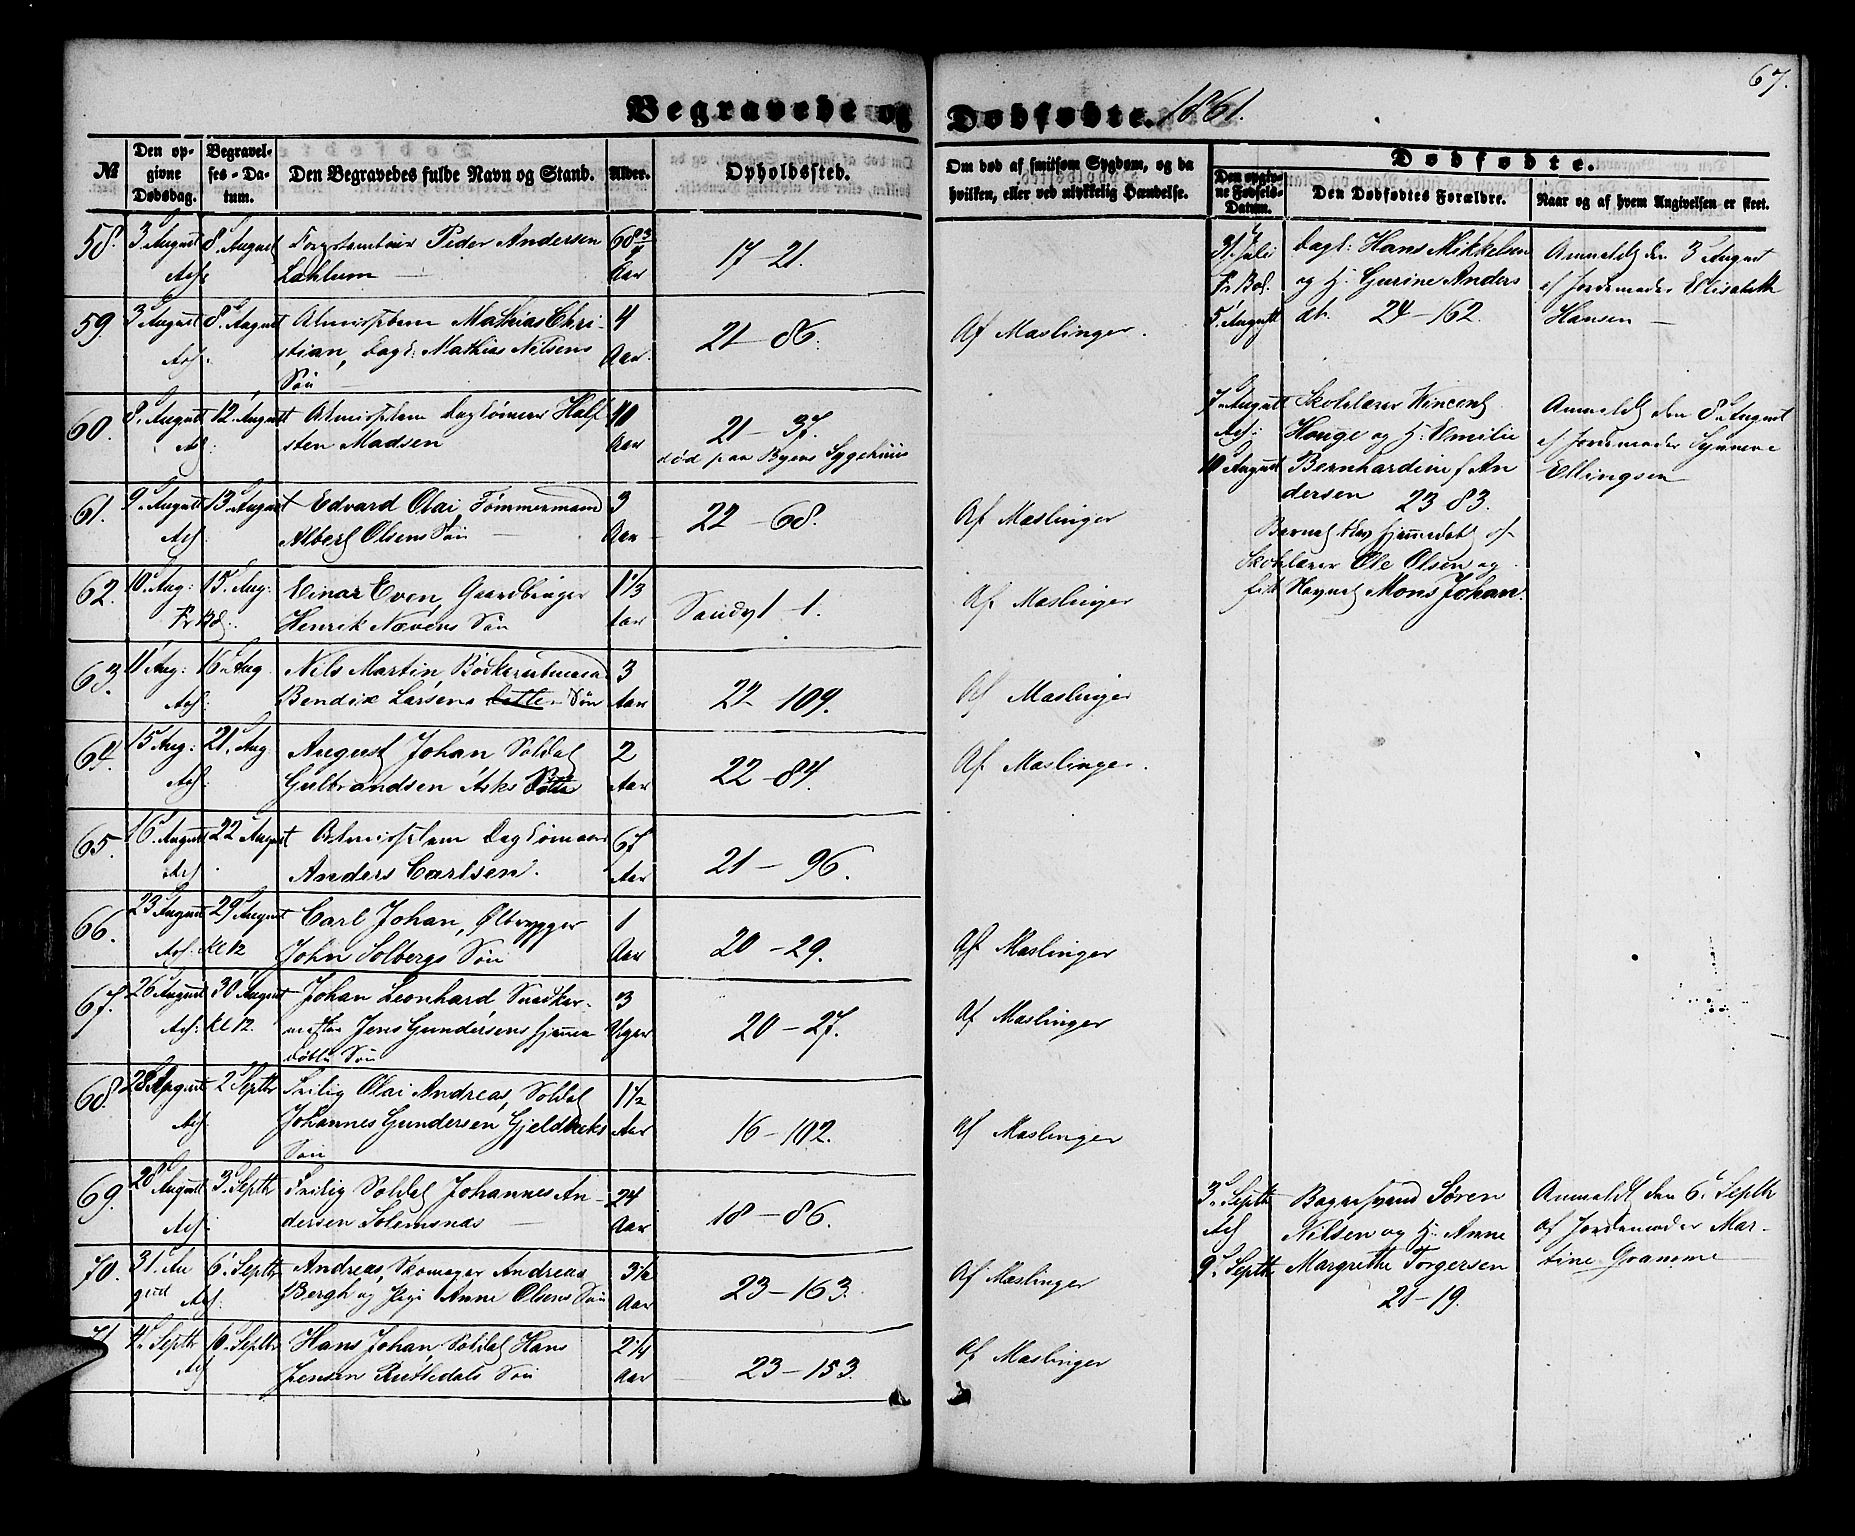 67.
Begravede og Dødfødte. 1861.
№
Den opgivne Dødsdag.
Begravelses-Datum.
Den Begravedes fulde Navn og Stand.
Alder.
Opholdssted.
Om død af smitsom Sygdom, og da hvilken, eller ved ulykkelig Hændelse.
Dødfødte.
Den opgivne Fødsels-Datum.
Den Dødfødtes Forældre.
Naar og af hvem Angivelsen er skeet.
58. 3 August 8. August Peder Andersen 68 3/4
Lahlum Aar 17-21.
59. 3 August 8. August Almislem Mathias Chri- 4
stian, Dagl: Mathias Nilsens Aar 21-86. Af Maslinger.
Søn
60. 8. August 12. August Almislem Half
sten Madsen Aar 21-37.
død paa Byens Sygehuus
61. 9. August 13. August Edvard Olai, Tømmermand 3
Albert Olsens Søn Aar 22-68. Af Maslinger
62. 10. Aug: 15. Aug: Einar Even, Gaardbruger 1 1/3
Henrik Nævens Søn Aar 1. Af Maslinger
63. 11 Aug: 16. Aug Nils Martin, 3
Bendix Larsens Søn Aar 22-109. Af Maslinger
64. 15 Aug: 21. Aug August Johan Soldat 2
Gulbrandsen Asks Aar 22-84. Af Maslinger.
65. 16. August 22 August 67
Anders Carlsen. Aar 21-96.
66. 23 August 29 August Carl Johan, Ølbrygger 1
Kl 12 John Solbergs Søn Aar 20-29. Af Maslinger
67. 26 August 30 August Johan Leonhard Snedker- 3
Kl 12. mester Jens Gundersens hjemme Uger 20-27. Af Maslinger
døbte Søn
68. 28 August 2 Septbr Olai Andreas, Soldat 1 1/2
Johannes Gundersen Aar 16-102. Af Maslinger
Søn
69. 28 August 3. Septbr Soldat Johannes An- 24
dersen Solemsnæs Aar 18-86.
70. 31. Au 6. Septbr Andreas, Skomager Andreas 3 1/2
gust Bergh og Pige Anne Olsens Søn Aar 23-163. Af Maslinger
71 4. Septbr 6. Septbr Hans Johan, Soldat Hans 2 1/4
Jensen Søn Aar 23-153. Af Maslinger
31. Juli Dagl: Hans Mikkelsen Anmeldt den 3 August
og H. Gurine Anders af Jordemoder Elisabeth
5. August dtr. 24-162. Hansen
7. August Skolelærer Vincent Anmeldt den 8. August
Houge og H. Emilie af Jordemoder Synneve
10 August Bernhardine f An Ellingsen
dersen 23 83.
Barnet blev hjemmedøbt af
Skolelærer Ole Olsen og
fik Navnet Mons Johan.
3. Septbr Bagersvend Søren Anmeldt den 6. Septbr
Nilsen og H. Anne af Jordemoder Mar-
9. Septbr Margrethe Torgersen tine Gramme
21-19.